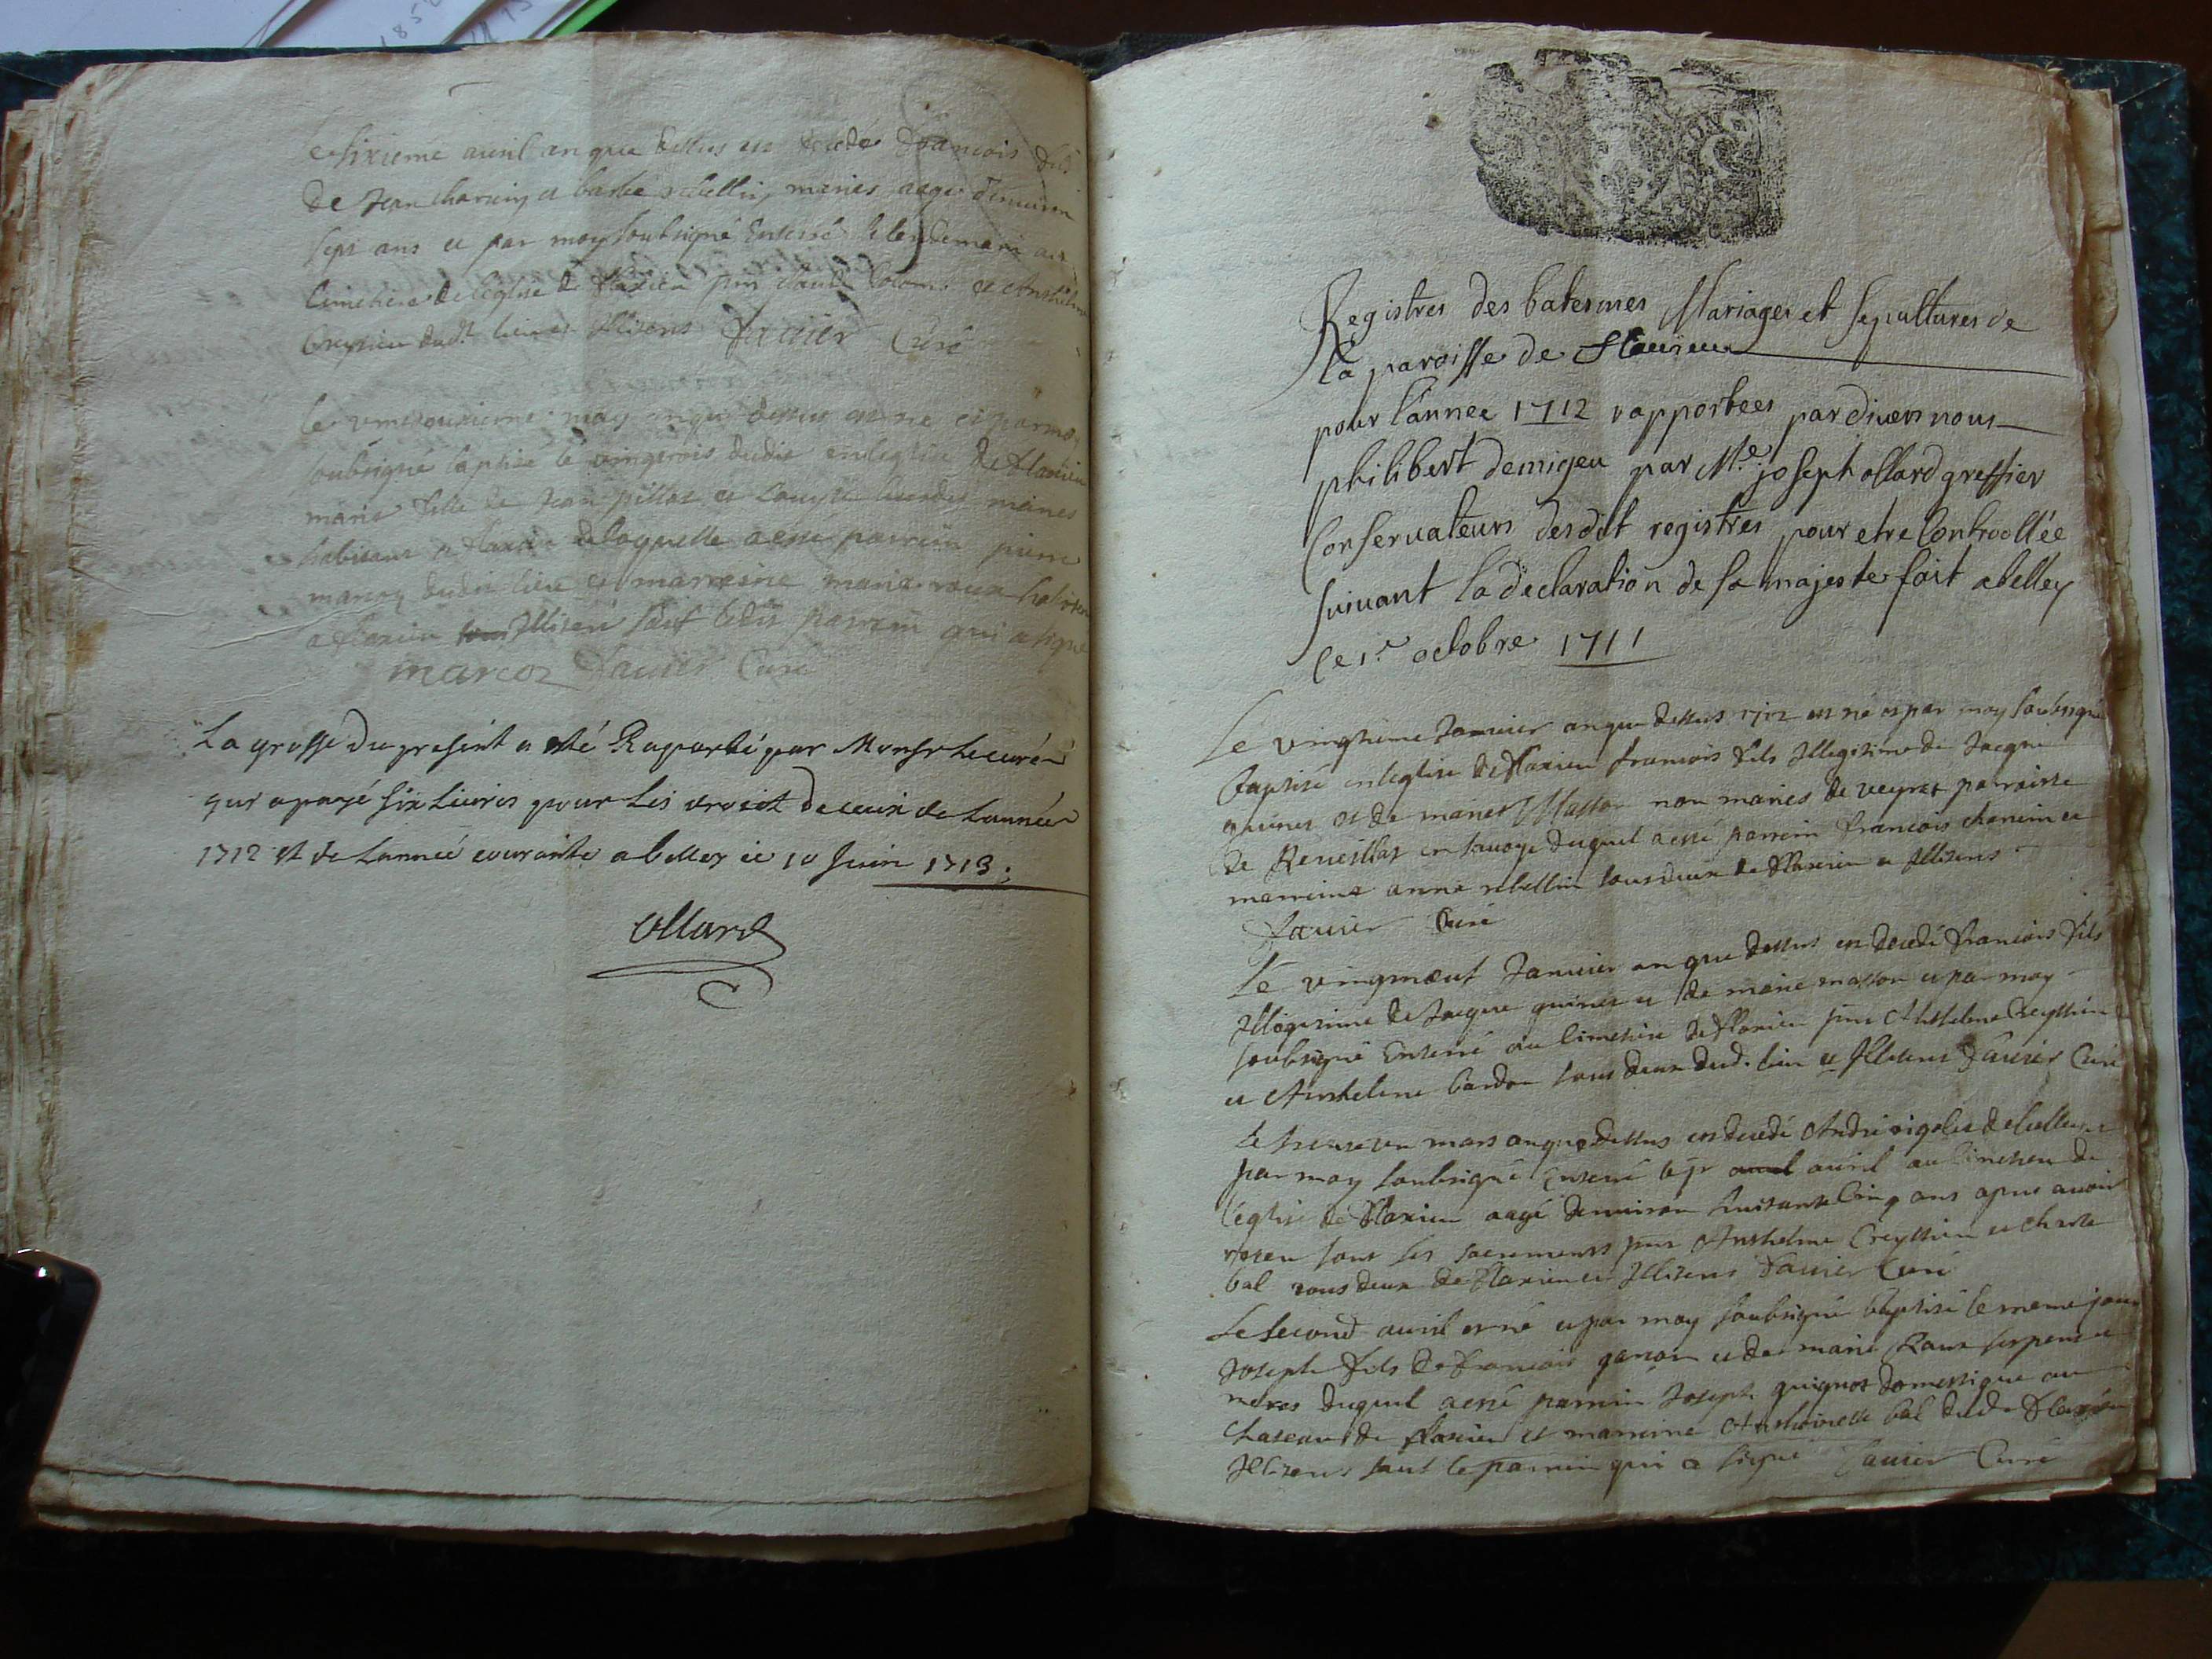 sixieme avril an que dessus est decedé francois fils
de Jean charcin et barbe rebellin maries aagé d'environ
sept ans et par moy soubsigné Enterré le lendemain au
Cimetiere de l'eglise de flaxieu pnt claude et Anthelme
Creyssieu dudt lieu et Illiterés favier Curé
le may an que dessus est née et par moy
soubsigné baptisé le vingtrois dudit en l'eglise de flaxieu
marie fille de Jean pillot et Louyse maries
habitant a flaxieu de laquelle a esté parrein pierre
marcoz dudit lieu et marreine marie roux habitant
a flaxieu Illiteré sauf ledit parrein qui a signé
marcoz favier Curé
La grosse du present a esté Raporté par Monsr le curé
qui a payé six livres pour les droict de ceux de Lannée
1712 et de Lanneé courante a belley ce 10 Juin 1713 ;
Ollard
Registres des batesmes Mariages et sepultures de
la paroisse de flaxieu
pour l'annee 1712 rapportees par divers nous
philibert demigeu par Me joseph ollard greffier
Conservateurs desdit registres pour etre Controollée
suivant la declaration de sa majeste fait a belley
ce 1.r octobre 1711
Le Janvier an que dessus 1712 est né et par moy soubsigné
baptisé en l'eglise de flaxieu francois fils Illegitime de Jacque
guinet et de marie Masson non maries de veyret parroisse
de en savoye duquel a esté parrein francois charcin et
marreine anne rebellin tous deux de flaxieu et Illiterés
favier Curé
Le vingtneuf Janvier an que dessus est decedé francois fils
Illegitime de Jacque guinet et de marie masson et par moy
soubsigné Enterré au Cimetiere de flaxieu pnt Anthelme Creyssieu
et Anthelme bardon tous deux dud. lieu et Illiterés favier Curé
le trente un mars an que dessus est decedé André rigolet de
par moy soubsigné Enterré le jr avril au Cimetiere de
l'eglise de flaxieu aagé denviron huitante Cinq ans apres avoir
receu tous les sacrements pnt Anthelme Creyssieu et
bal tous deux de flaxieu et Illiterés favier Curé
Le second avril est né et par moy soubsigné baptisé le meme jour
Joseph fils de francois garçon et de marie Raux
duquel a esté parrein Joseph guignot domestique au
chateau de flaxieu et marreine Anthoinette bal dudt flaxieu
Illiterés sauf le parrein qui a signé favier Curé